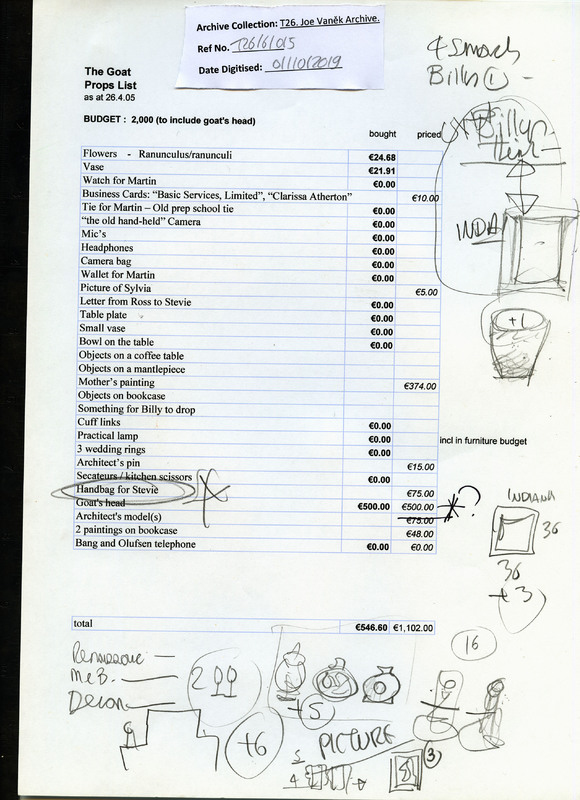 Archive Collection: T26. Joe Vaněk Archive.
Ref No. T26/6/015
Date Digitised: 01/10/2019
The Goat
Props List
as at 26.4.05
BUDGET : 2,000 (to include goat's head)
bought priced
Flowers - Ranunculus/ranunculi €24.68
Vase €21.91
Watch for Martin €0.00
Business Cards: "Basic Services, Limited", "Clarissa Atherton" €10.00
Tie for Martin – Old prep school tie €0.00
"the old hand-held" Camera €0.00
Mic's €0.00
Headphones €0.00
Camera bag €0.00
Wallet for Martin €0.00
Picture of Sylvia €5.00
Letter from Ross to Stevie €0.00
Table plate €0.00
Small vase €0.00
Bowl on the table €0.00
Objects on a coffee table
Objects on a mantlepiece
Mother's painting €374.00
Objects on bookcase
Something for Billy to drop
Cuff links €0.00
Practical lamp €0.00 incl in furniture budget
3 wedding rings €0.00
Architect's pin €15.00
Secateurs / kitchen scissors €0.00
Handbag for Stevie €75.00
Goat's head €500.00 €500.00
Architect's model(s) €75.00
2 paintings on bookcase €48.00
Bang and Olufsen telephone €0.00 €0.00
total €546.60 €1,102.00
4 Smash
Billys 1 -
Billys
Item
INDA
+1
?
INDIANA
36
36
+3
16
2
+5
+6
PICTURE
3
4